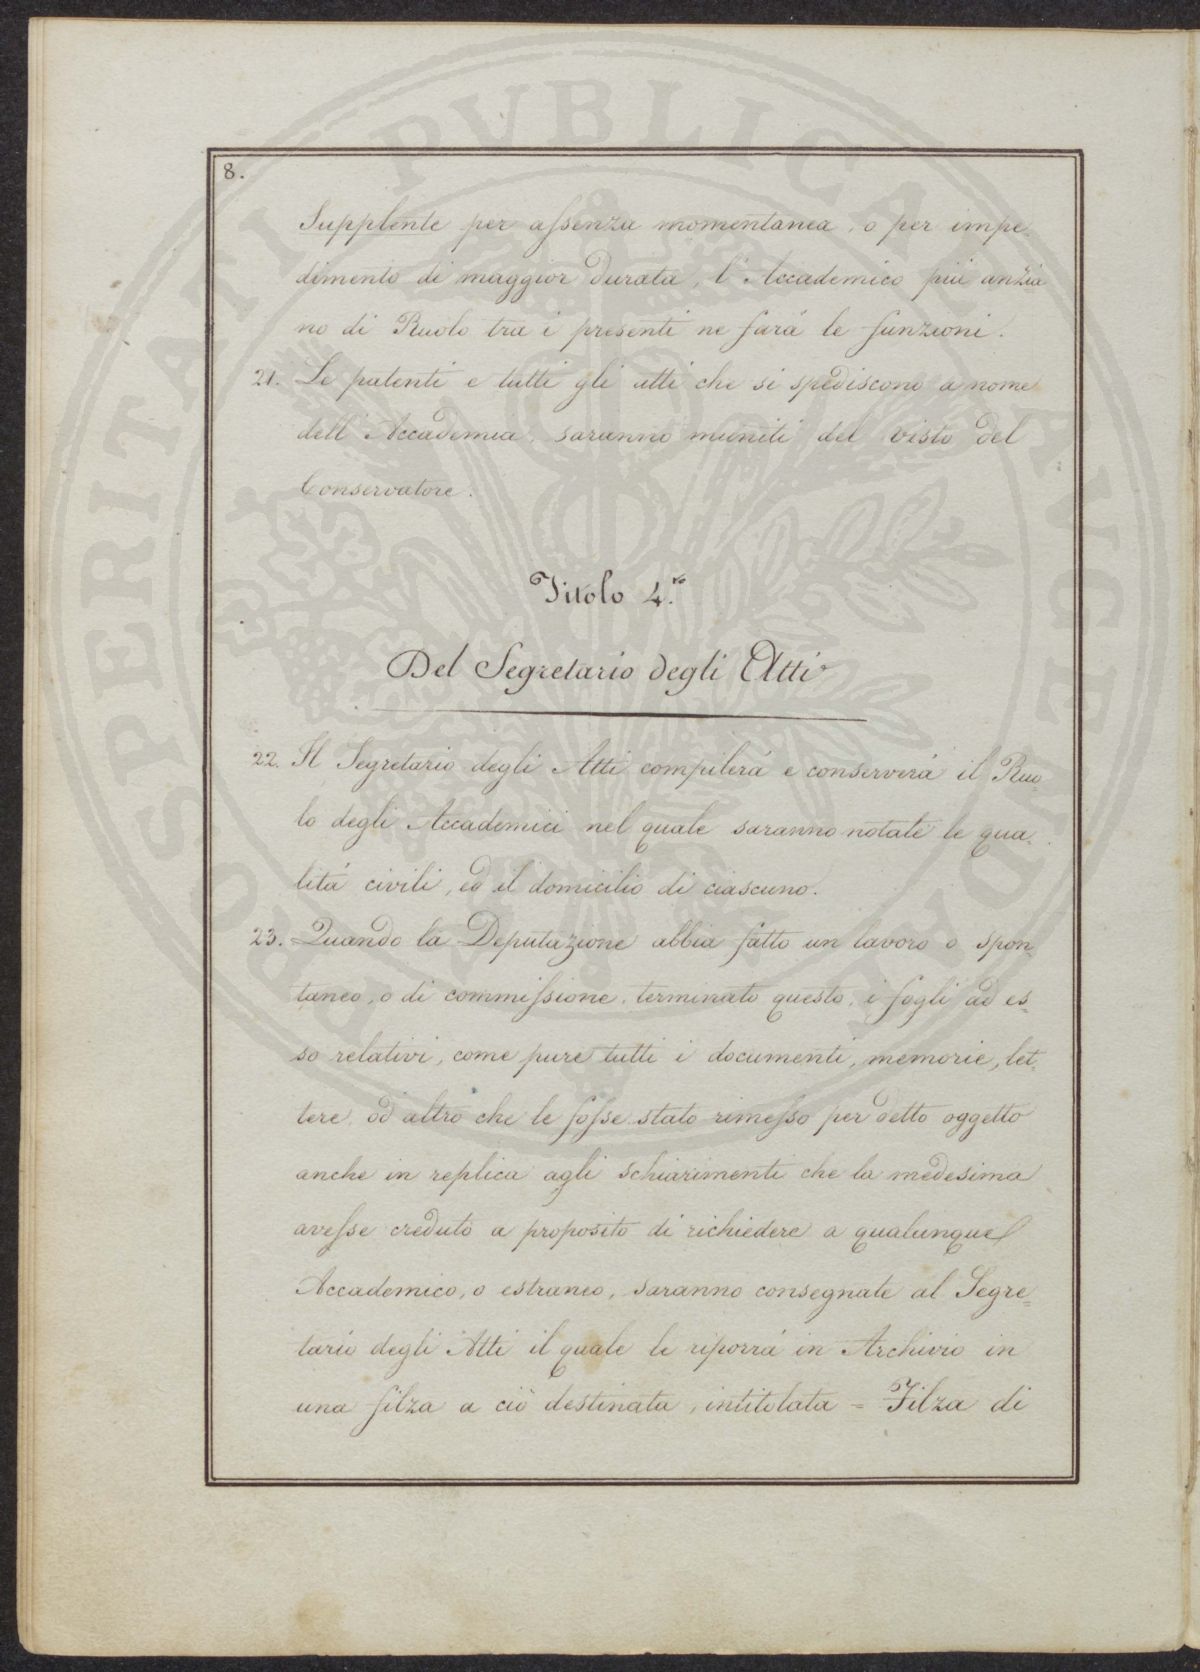 8.
Supplente per assenza momentanea, o per impe=
dimento di maggior durata, l'Accademico più anzia=
no di Ruolo tra i presenti ne farà le funzioni.
21. Le patenti e tutti gli atti che si spediscono a nome
dell'Accademia, saranno muniti del visto del
Conservatore.
Titolo 4.to
Del Segretario degli Atti
22. Il Segretario degli Atti compilerà e conserverà il Ruo=
lo degli Accademici nel quale saranno notate le qua=
lità civili, ed il domicilio di ciascuno.
23. Quando la Deputazione abbia fatto un lavoro o spon=
taneo, o di commissione, terminato questo, i fogli ad es=
so relativi, come pure tutti i documenti, memorie, let=
tere, od altro che le fosse stato rimesso per detto oggetto
anche in replica agli schiarimenti che la medesima
avesse creduto a proposito di richiedere a qualunque
Accademico, o estraneo, saranno consegnate al Segre=
tario degli Atti il quale le riporrà in Archivio in
una filza a ciò destinata, intitolata = Filza di
PROSPERITATI PVBLICAE AVGENDAE